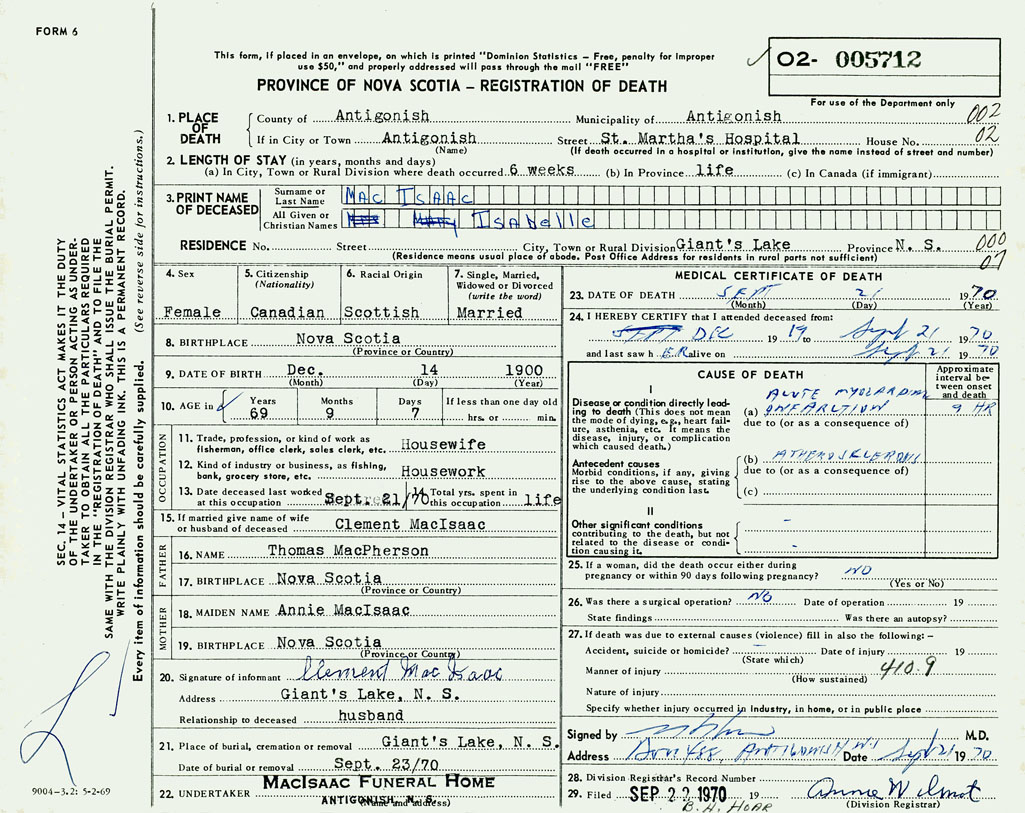 FORM 6
This form, if placed in an envelope, on which is printed "Dominion Statistics – Free, penalty for improper
use $50," and properly addressed will pass through the mail "FREE"
PROVINCE OF NOVA SCOTIA – REGISTRATION OF DEATH
O2- 005712
For use of the Department only
1. PLACE OF DEATH
County of Antigonish Municipality of Antigonish 002
If in City or Town Antigonish Street St. Martha's Hospital House No. 02
(Name) (If death occurred in a hospital or institution, give the name instead of street and number)
2. LENGTH OF STAY (in years, months and days)
(a) In City, Town or Rural Division where death occurred 6 weeks (b) In Province life (c) In Canada (if immigrant)
3. PRINT NAME OF DECEASED
Surname or Last Name MAC ISAAC
All Given or Christian Names ISAbelle
RESIDENCE No. Street City, Town or Rural Division Giant's Lake Province N. S. 000
(Residence means usual place of abode. Post Office Address for residents in rural parts not sufficient) 07
4. Sex
Female
5. Citizenship
(Nationality)
Canadian
6. Racial Origin
Scottish
7. Single, Married, Widowed or Divorced
(write the word)
Married
8. BIRTHPLACE Nova Scotia
(Province or Country)
9. DATE OF BIRTH Dec. 14 1900
(Month) (Day) (Year)
10. AGE in
Years Months Days If less than one day old
69 9 7 hrs. or min.
OCCUPATION
11. Trade, profession, or kind of work as
fisherman, office clerk, sales clerk, etc. Housewife
12. Kind of industry or business, as fishing,
bank, grocery store, etc. Housework
13. Date deceased last worked
at this occupation Sept. 21/70
14 Total yrs. spent in
this occupation life
15. If married give name of wife
or husband of deceased Clement MacIsaac
FATHER
16. NAME Thomas MacPherson
17. BIRTHPLACE Nova Scotia
(Province or Country)
MOTHER
18. MAIDEN NAME Annie MacIsaac
19. BIRTHPLACE Nova Scotia
(Province or Country)
20. Signature of informant Clement Mac Isaac
Address Giant's Lake, N. S.
Relationship to deceased husband
21. Place of burial, cremation or removal Giant's Lake, N. S.
Date of burial or removal Sept. 23/70
22. UNDERTAKER MACISAAC FUNERAL HOME
ANTIGONISH, N. S.
(Name and address)
MEDICAL CERTIFICATE OF DEATH
23. DATE OF DEATH SEPT 21 1970
(Month) (Day) (Year)
24. I HEREBY CERTIFY that I attended deceased from:
SEPT DEC 19 19 to Sept 21 1970
and last saw h ER alive on Sept 21 1970
CAUSE OF DEATH
Approximate interval between onset and death
I
Disease or condition directly leading to death (This does not mean the mode of dying, e.g., heart failure, asthenia, etc. It means the disease, injury, or complication which caused death.)
ACUTE MYOCARDIAL
(a) INFARCTION 9 HR
due to (or as a consequence of)
Antecedent causes
Morbid conditions, if any, giving rise to the above cause, stating the underlying condition last.
(b) ATHEROSCLEROSIS
due to (or as a consequence of)
(c)
II
Other significant conditions
contributing to the death, but not related to the disease or condition causing it.
25. If a woman, did the death occur either during
pregnancy or within 90 days following pregnancy? NO
(Yes or No)
26. Was there a surgical operation? NO Date of operation 19
State findings Was there an autopsy?
27. If death was due to external causes (violence) fill in also the following: –
Accident, suicide or homicide? Date of injury 19
(State which)
Manner of injury 410.9
(How sustained)
Nature of injury
Specify whether injury occurred in industry, in home, or in public place
Signed by M.D.
Address Box 488, ANTIGONISH NS Date Sept 21 1970
28. Division Registrar's Record Number
29. Filed SEP 22 1970 19 Annie Wilmot
B. H. HOAR (Division Registrar)
SEC. 14 – VITAL STATISTICS ACT MAKES IT THE DUTY
OF THE UNDERTAKER OR PERSON ACTING AS UNDER-
TAKER TO OBTAIN ALL THE PARTICULARS REQUIRED
IN THE "REGISTRATION OF DEATH" AND TO FILE THE
SAME WITH THE DIVISION REGISTRAR WHO SHALL ISSUE THE BURIAL PERMIT.
WRITE PLAINLY WITH UNFADING INK. THIS IS A PERMANENT RECORD.
Every item of information should be carefully supplied. (See reverse side for instructions.)
9004–3.2: 5-2-69